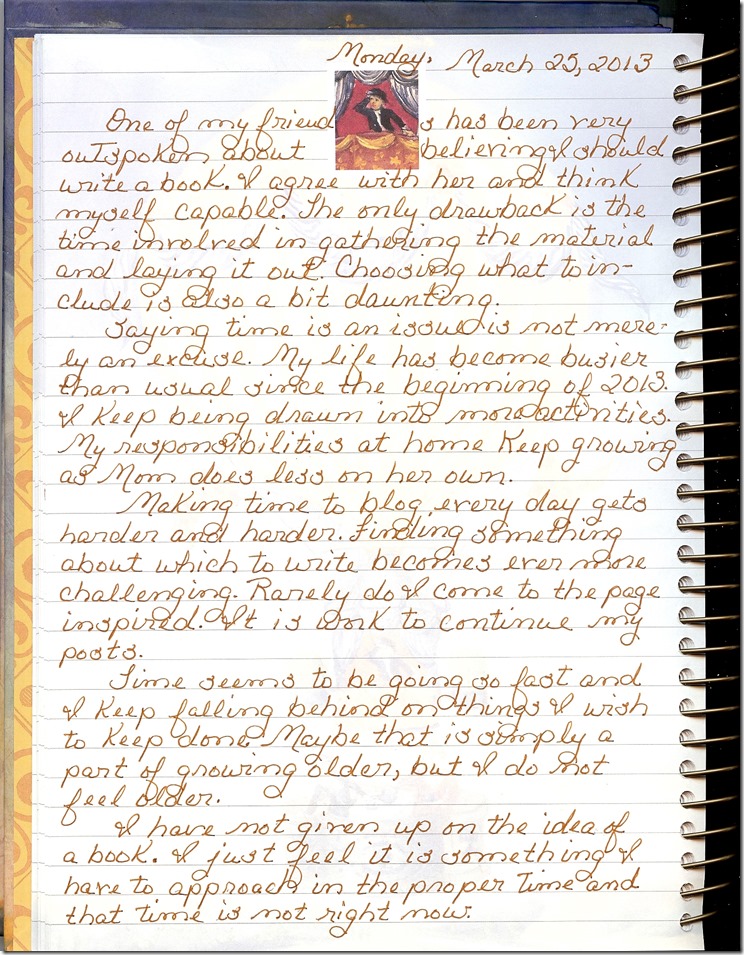 Monday, March 25, 2013
One of my friends has been very
outspoken about believing I should
write a book. I agree with her and think
myself capable. The only drawback is the
time involved in gathering the material
and laying it out. Choosing what to in-
clude is also a bit daunting.
Saying time is an issue is not mere-
ly an excuse. My life has become busier
than usual since the beginning of 2013.
I keep being drawn into more activities.
My responsibilities at home keep growing
as Mom does less on her own.
Making time to blog every day gets
harder and harder. Finding something
about which to write becomes ever more
challenging. Rarely do I come to the page
inspired. It is work to continue my
posts.
Time seems to be going so fast and
I keep falling behind on things I wish
to keep done. Maybe that is simply a
part of growing older, but I do not
feel older.
I have not given up on the idea of
a book. I just feel it is something I
have to approach in the proper time and
that time is not right now.